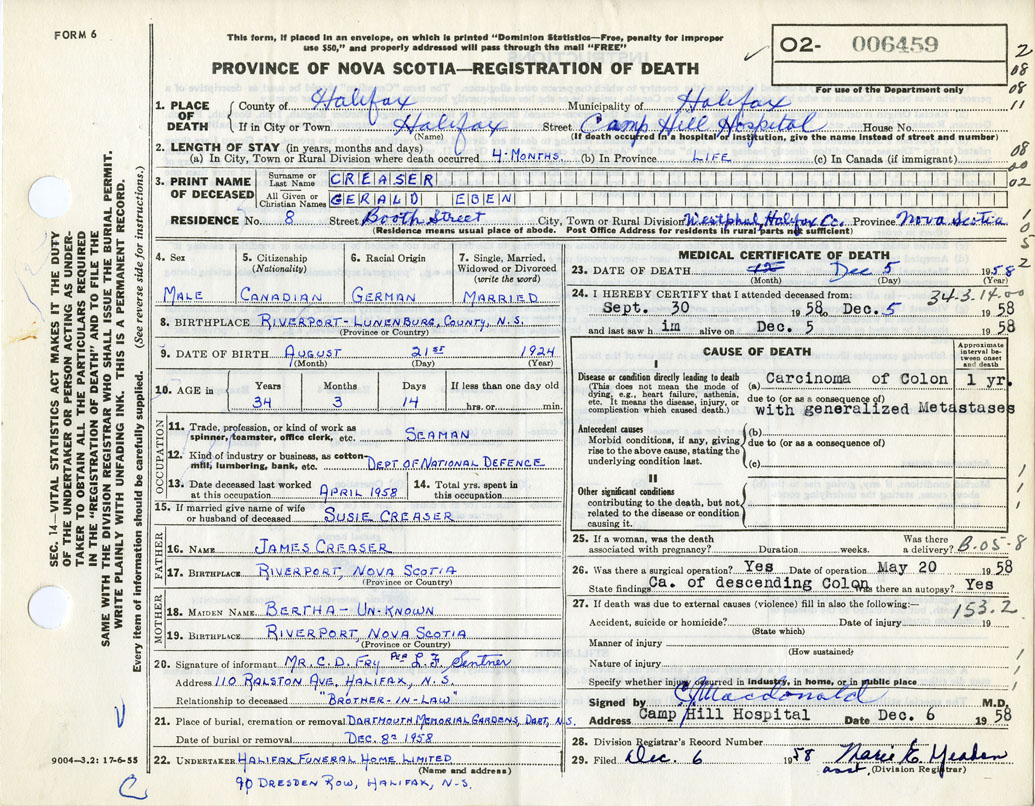 FORM 6
This form, if placed in an envelope, on which is printed "Dominion Statistics—Free, penalty for improper
use $50," and properly addressed will pass through the mail "FREE"
PROVINCE OF NOVA SCOTIA—REGISTRATION OF DEATH
02- 006459
For use of the Department only
2
08
08
11
1. PLACE OF DEATH
County of Halifax Municipality of Halifax
If in City or Town Halifax (Name) Street Camp Hill Hospital House No.
(If death occurred in a hospital or institution, give the name instead of street and number)
2. LENGTH OF STAY (in years, months and days)
(a) In City, Town or Rural Division where death occurred 4-MONTHS (b) In Province LIFE (c) In Canada (if immigrant)
08
00
02
3. PRINT NAME OF DECEASED
Surname or Last Name CREASER
All Given or Christian Names GERALD EBEN
RESIDENCE No. 8 Street Booth Street City, Town or Rural Division Westphal, Halifax Co. Province Nova Scotia
(Residence means usual place of abode. Post Office Address for residents in rural parts not sufficient)
4. Sex
MALE
5. Citizenship (Nationality)
CANADIAN
6. Racial Origin
GERMAN
7. Single, Married, Widowed or Divorced (write the word)
MARRIED
8. BIRTHPLACE RIVERPORT-LUNENBURG, COUNTY, N.S.
(Province or Country)
9. DATE OF BIRTH AUGUST 21ST 1924
(Month) (Day) (Year)
10. AGE in
Years Months Days If less than one day old
34 3 14 hrs. or min.
OCCUPATION
11. Trade, profession, or kind of work as
spinner, teamster, office clerk, etc. SEAMAN
12. Kind of industry or business, as cotton-
mill, lumbering, bank, etc. DEPT OF NATIONAL DEFENCE
13. Date deceased last worked at this occupation APRIL 1958
14. Total yrs. spent in this occupation
15. If married give name of wife
or husband of deceased SUSIE CREASER
FATHER
16. NAME JAMES CREASER
17. BIRTHPLACE RIVERPORT, NOVA SCOTIA
(Province or Country)
MOTHER
18. MAIDEN NAME BERTHA-UN-KNOWN
19. BIRTHPLACE RIVERPORT, NOVA SCOTIA
(Province or Country)
20. Signature of informant MR. C.D. FRY per L.F. Sentner
Address 110 RALSTON AVE, HALIFAX, N.S.
Relationship to deceased "BROTHER-IN-LAW"
21. Place of burial, cremation or removal DARTMOUTH MEMORIAL GARDENS, DART, N.S.
Date of burial or removal DEC. 8TH 1958
22. UNDERTAKER HALIFAX FUNERAL HOME LIMITED
(Name and address)
90 DRESDEN ROW, HALIFAX, N-S.
MEDICAL CERTIFICATE OF DEATH
23. DATE OF DEATH 12 Dec 5 1958
(Month) (Day) (Year)
24. I HEREBY CERTIFY that I attended deceased from: 34-3-14-00
Sept. 30 1958 to Dec. 5 1958
and last saw him alive on Dec. 5 1958
CAUSE OF DEATH
Approximate interval between onset and death
I
Disease or condition directly leading to death
(This does not mean the mode of
dying, e.g., heart failure, asthenia,
etc. It means the disease, injury, or
complication which caused death.)
(a) Carcinoma of Colon 1 yr.
due to (or as a consequence of)
with generalized Metastases
Antecedent causes
Morbid conditions, if any, giving
rise to the above cause, stating the
underlying condition last.
(b)
due to (or as a consequence of)
(c)
II
Other significant conditions
contributing to the death, but not
related to the disease or condition
causing it.
25. If a woman, was the death
associated with pregnancy? Duration weeks. Was there a delivery? B.05-8
26. Was there a surgical operation? Yes Date of operation May 20 1958
State findings Ca. of descending Colon Was there an autopsy? Yes
27. If death was due to external causes (violence) fill in also the following:— 153.2
Accident, suicide or homicide? Date of injury 19
(State which)
Manner of injury
(How sustained)
Nature of injury
Specify whether injury occurred in industry, in home, or in public place
Signed by C. Macdonald M.D.
Address Camp Hill Hospital Date Dec. 6 1958
28. Division Registrar's Record Number
29. Filed Dec. 6 1958 Marie E. Yeadon
asst. (Division Registrar)
SEC. 14—VITAL STATISTICS ACT MAKES IT THE DUTY
OF THE UNDERTAKER OR PERSON ACTING AS UNDER-
TAKER TO OBTAIN ALL THE PARTICULARS REQUIRED
IN THE "REGISTRATION OF DEATH" AND TO FILE THE
SAME WITH THE DIVISION REGISTRAR WHO SHALL ISSUE THE BURIAL PERMIT.
WRITE PLAINLY WITH UNFADING INK. THIS IS A PERMANENT RECORD.
Every item of information should be carefully supplied. (See reverse side for instructions.)
9004-3.2: 17-6-55